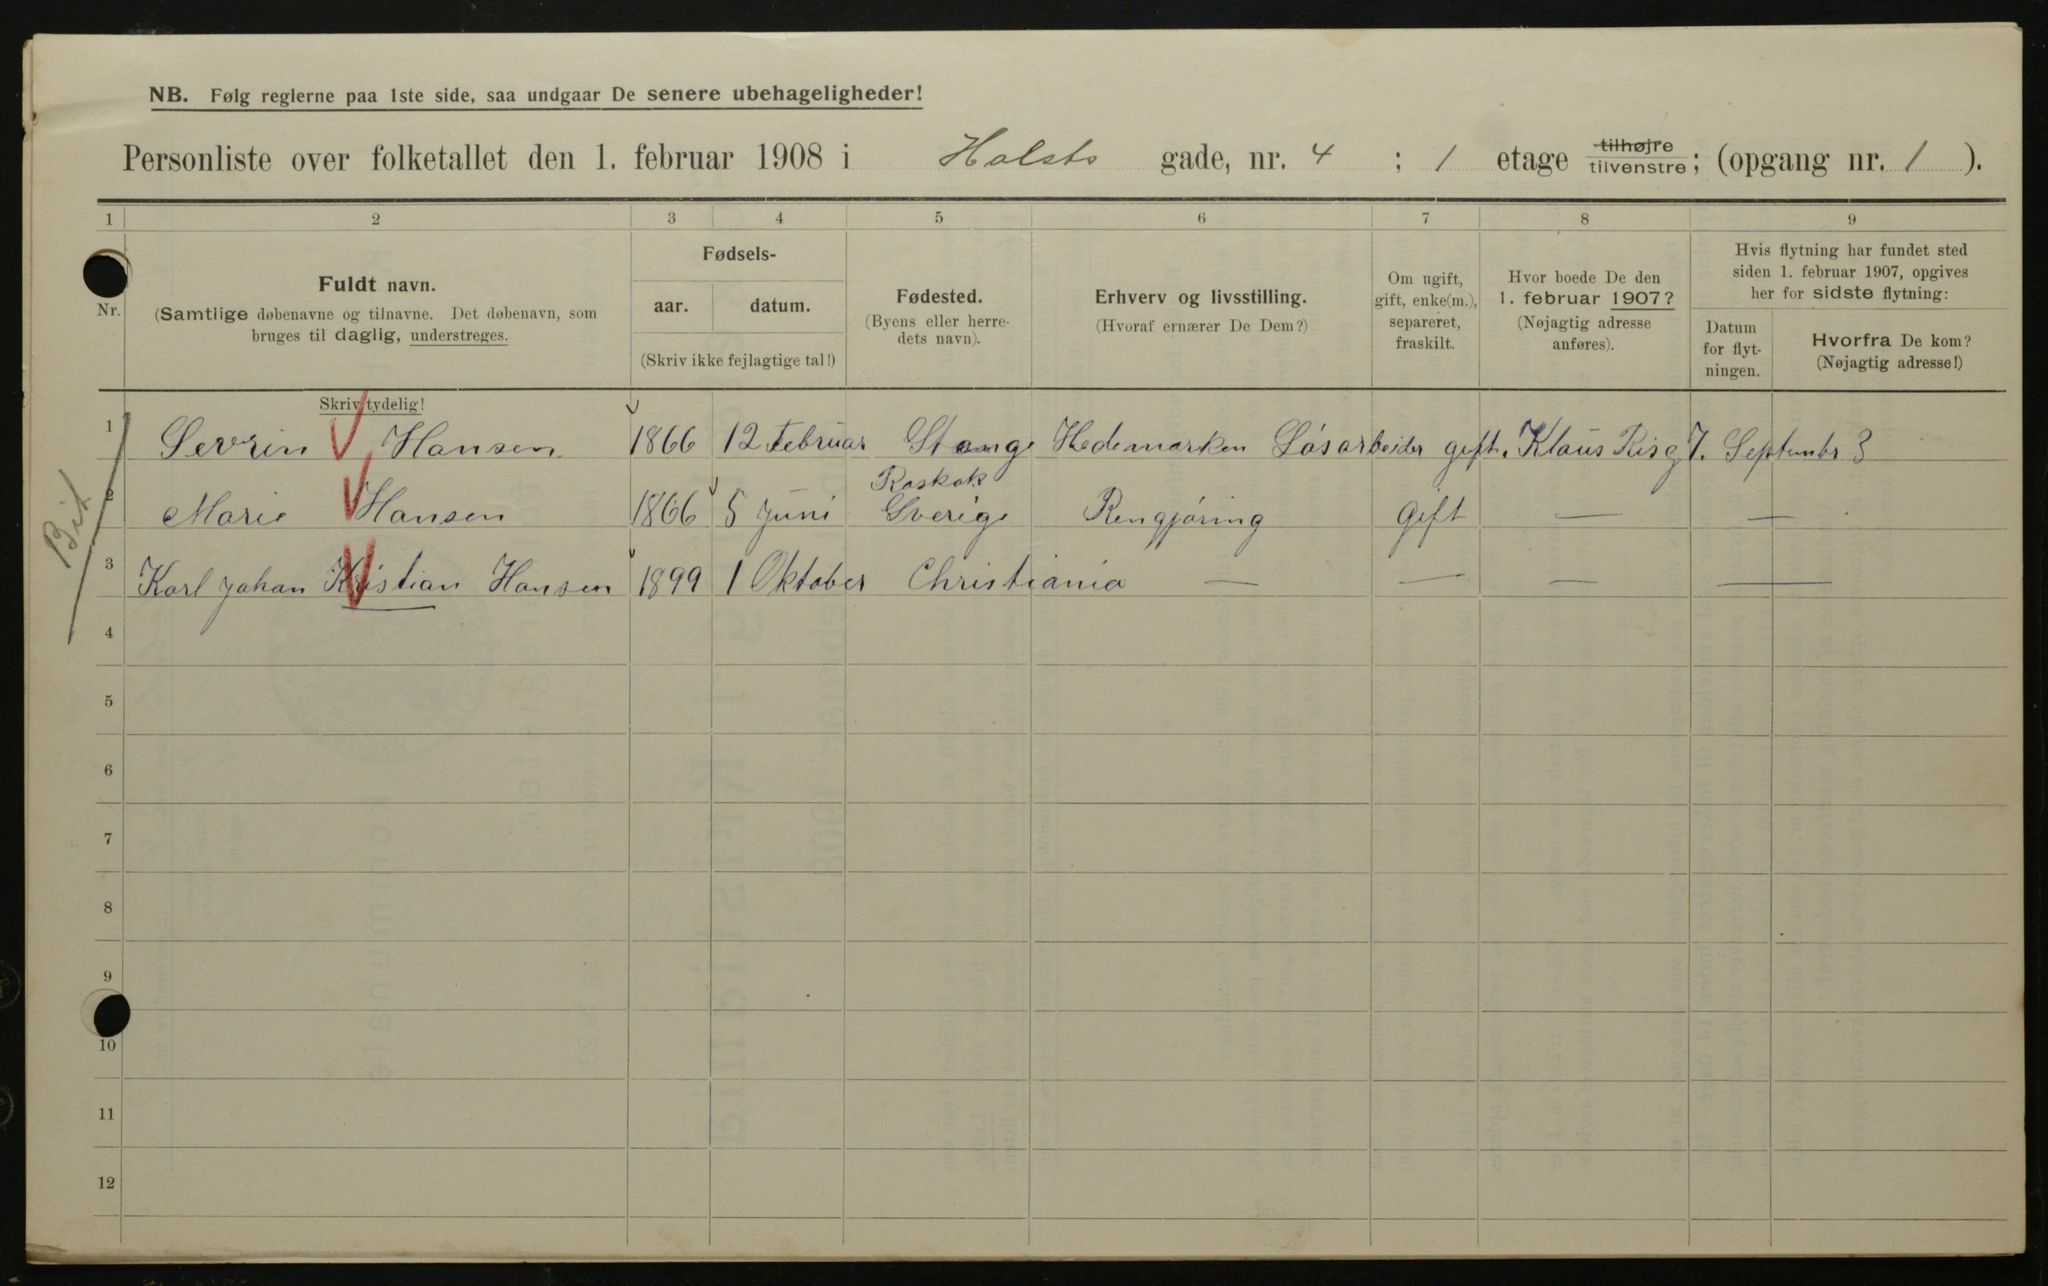 NB. Følg reglerne paa 1ste side, saa undgaar De senere ubehageligheder!
Personliste over folketallet den 1. februar 1908 i Holsts gade, nr. 4 ; 1 etage tilhøjre tilvenstre; (opgang nr. 1 ).
1 2 3 4 5 6 7 8 9
Nr.
Fuldt navn.
(Samtlige døbenavne og tilnavne. Det døbenavn, som
bruges til daglig, understreges.
Skriv tydelig!
Fødsels-
aar. datum.
(Skriv ikke fejlagtige tal!)
Fødested.
(Byens eller herre-
dets navn).
Erhverv og livsstilling.
(Hvoraf ernærer De Dem?)
Om ugift,
gift, enke(m.),
separeret,
fraskilt.
Hvor boede De den
1. februar 1907?
(Nøjagtig adresse
anføres).
Hvis flytning har fundet sted
siden 1. februar 1907, opgives
her for sidste flytning:
Datum
for flyt-
ningen.
Hvorfra De kom?
(Nøjagtig adresse!)
1 Sevrin Hansen 1866 12 Februar Stange Hedemarken Løsarbeider gift. Klaus Risg 7. Septembr 3
2 Marie Hansen 1866 5 Juni Sverige Rengjøring Gift — —
3 Karl Johan Kristian Hansen 1899 1 Oktober Christiania — — — —
4
5
6
7
8
9
10
11
12